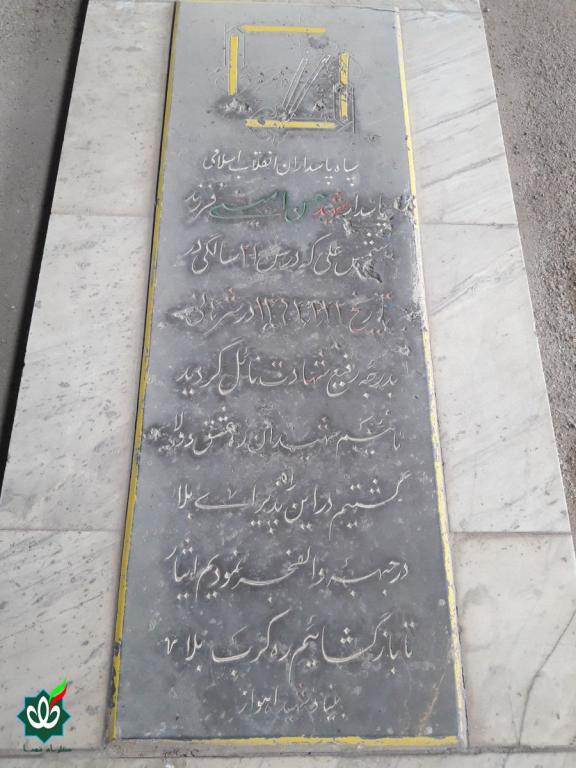 سپاه پاسداران انقلاب اسلامی
پاسدار شهید حسن امینی فرزند
شمس علی که در سن ۲۱ سالگی در
تاریخ در شرهانی
بدرجه رفیع شهادت نائل گردید
مائیم شهیدان ره عشق و ولا
گشتیم در این راه پذیرای بلا
در جبهه والفجر نمودیم ایثار
تا باز گشائیم ره کرب بلا
بنیاد شهید اهواز